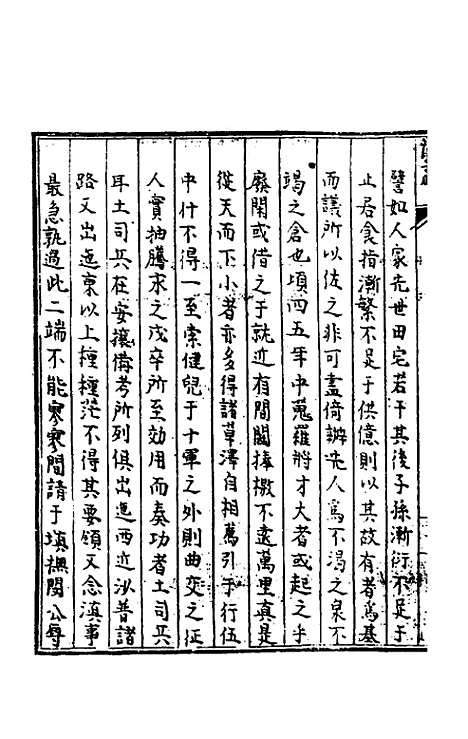 譬如人家先世田宅若干其後子孫漸衍不足于
止居食指漸繁不足于供億則以其故有者爲基
而議所以佐之非可盡倚辦先人爲不渴之泉不
竭之倉也頃四五年中蒐羅將才大者或起之乎
廢閑或借之于就近有聞闔捧檄不遠萬里真是
從天而下小者亦多得諸草澤自相薦引乎行伍
中什不得一至索健兒于十軍之外則曲突之征
人實抽騰求之戍卒所至効用而奏功者土司兵
耳土司兵在安攘備考所列俱出迤西近沙普諸
路又出迤東以上種種茫不得其要領又念滇事
最急孰過此二端不能寥寥間請于填撫閔公每